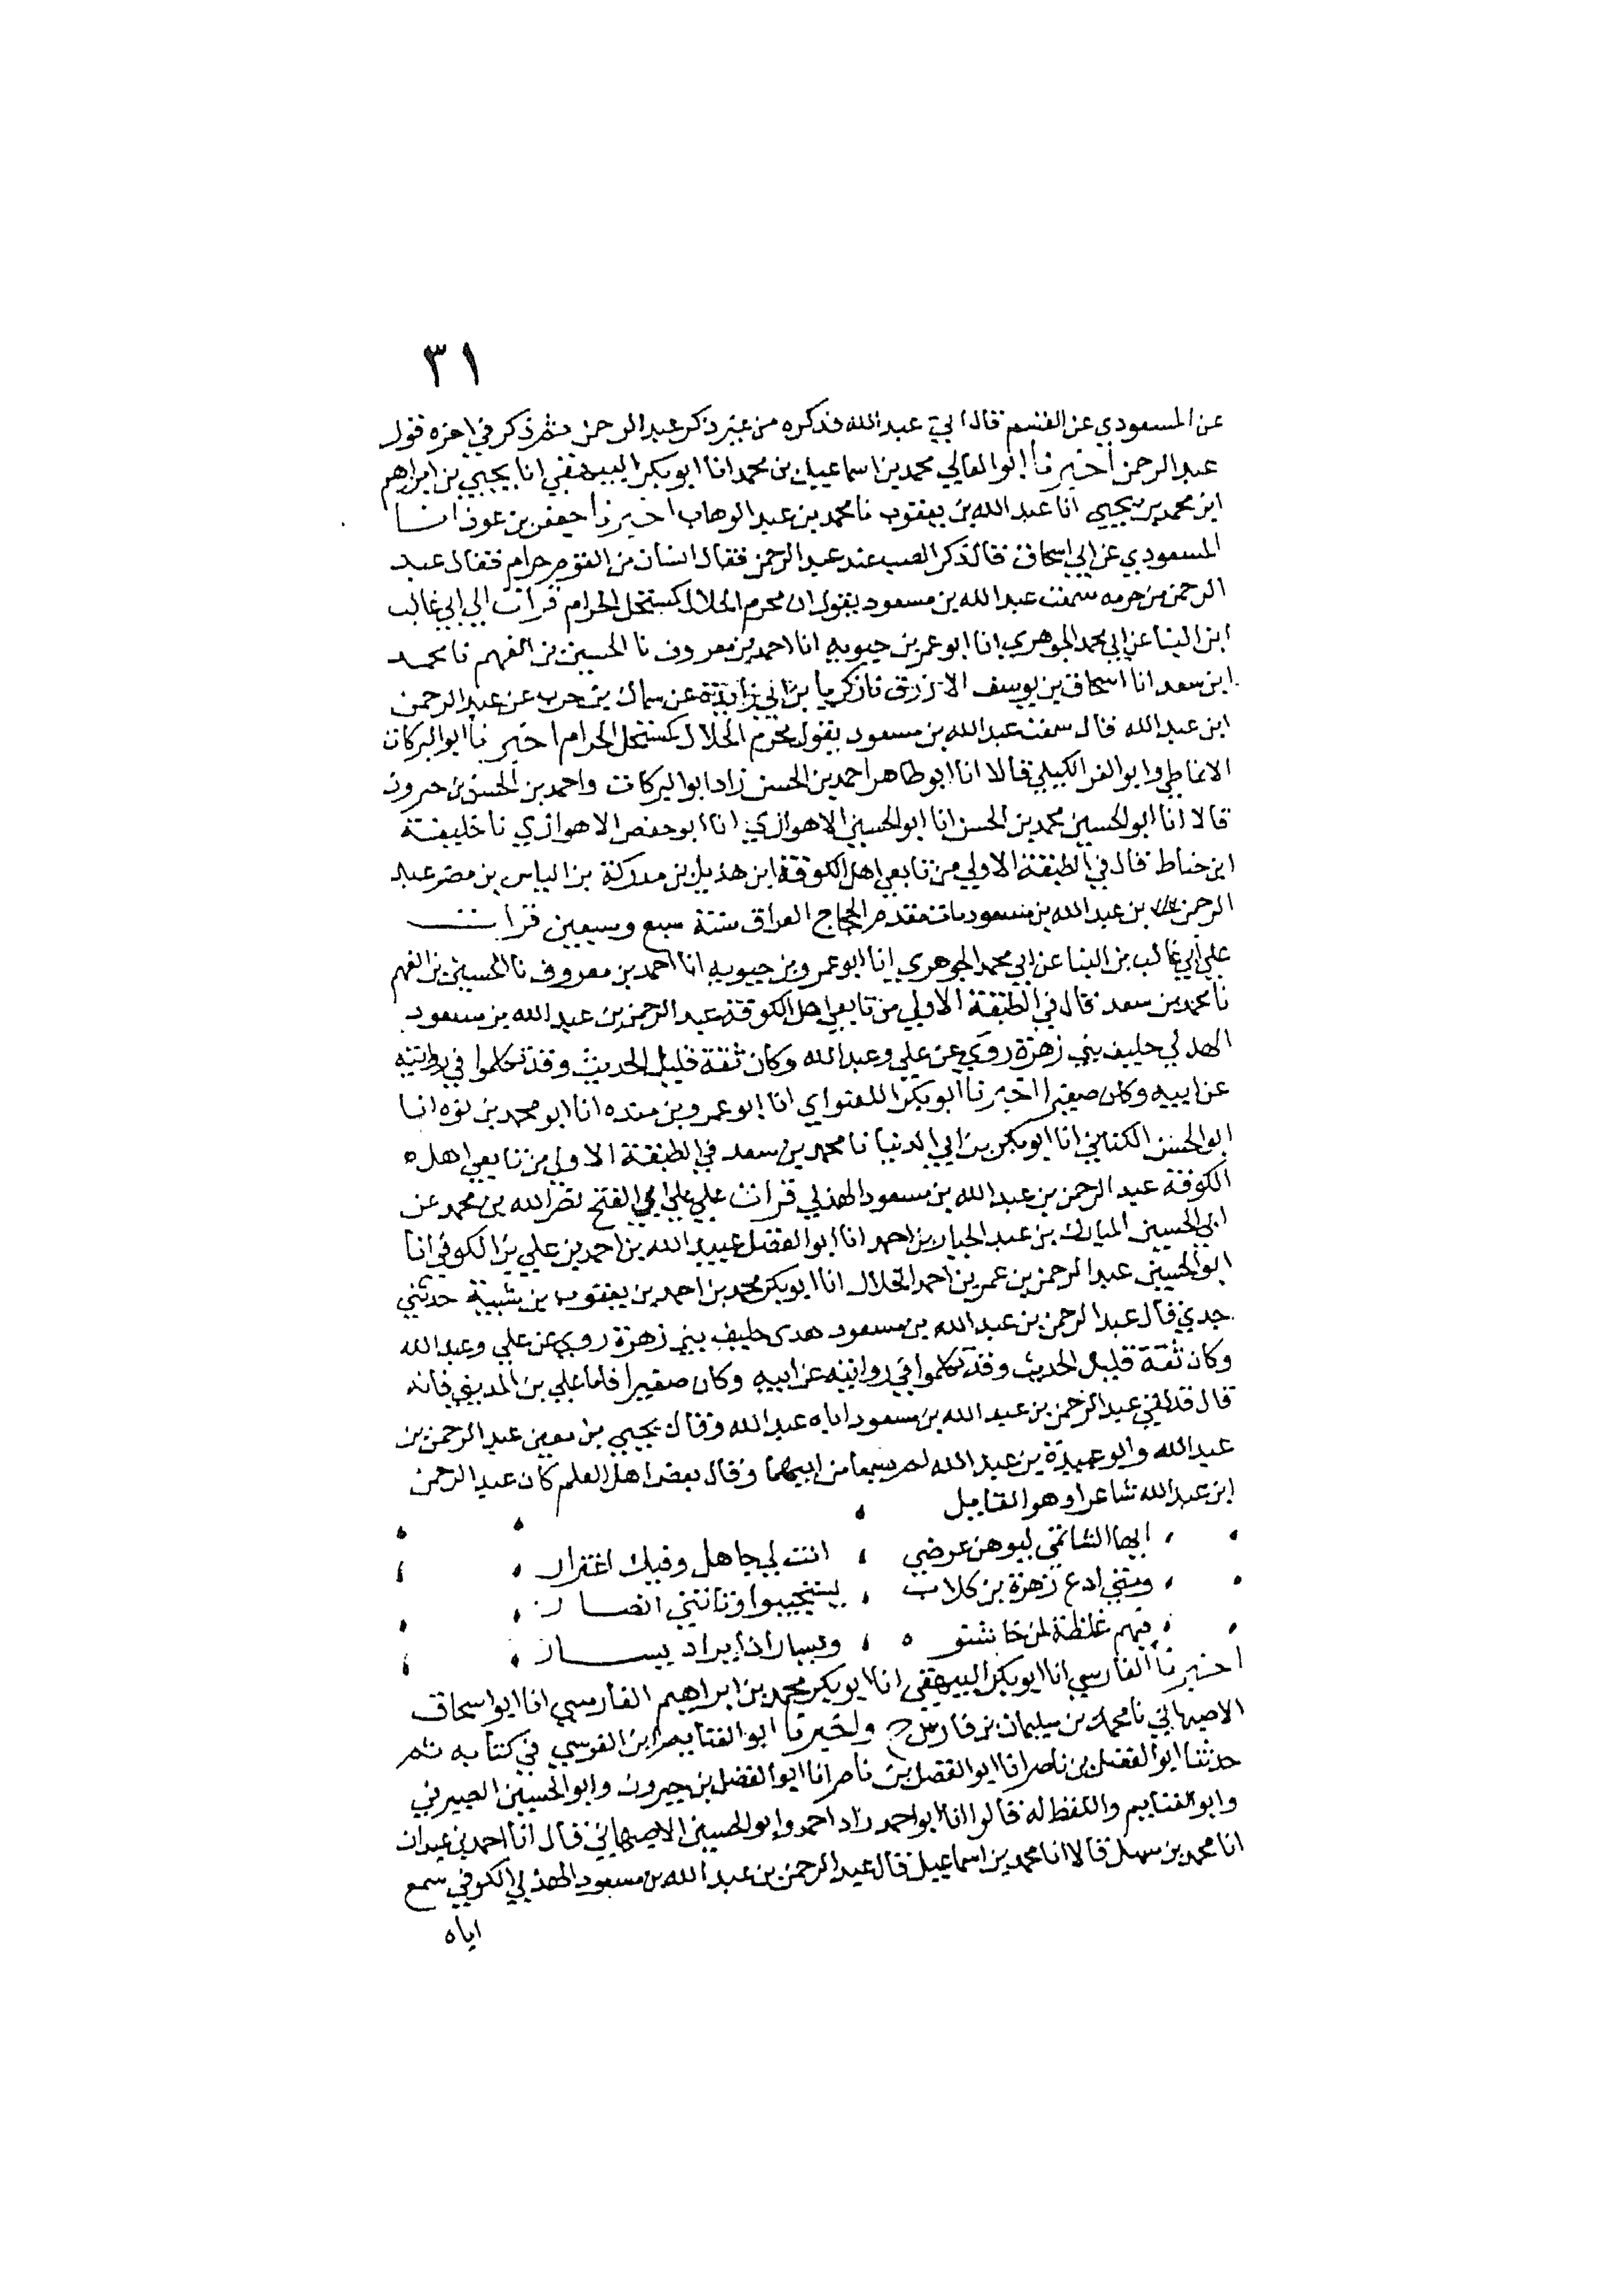 ٣١
عن المسعودي عن القسم قال اتي عبد الله فذكره من غير ذكر عبد الرحمن ثم ذكر في اخره قول
عبد الرحمن اخبرنا ابو المعالي محمد بن اسماعيل بن محمد انا ابو بكر البيهقي انا يحيي بن ابراهيم
ابن محمد بن يحيي انا عبد الله بن يعقوب نا محمد بن عبد الوهاب اخبرنا جعفر بن عون انا
المسعودي عن ابي اسحاق قال ذكر الضب عند عبد الرحمن فقال انسان من القوم حرام فقال عبد
الرحمن من حرمه سمعت عبد الله بن مسعود يقول ان محرم الحلال كمستحل الحرام قرات الي ابي غالب
ابن البنا عن ابي محمد الجوهري انا ابو عمر بن حيويه انا احمد بن معروف نا الحسين بن الفهم نا محمد
ابن سعد انا اسحاق بن يوسف الازرق نا زكريا بن ابي زايدة عن سماك بن حرب عن عبد الرحمن
ابن عبد الله قال سمعت عبد الله بن مسعود يقول محرم الحلال كمستحل الحرام اخبرنا ابو البركات
الانماطي وابو العز الكيلي قالا انا ابو طاهر احمد بن الحسن زاد ابو البركات واحمد بن الحسن بن خيرون
قالا انا ابو الحسين محمد بن الحسن انا ابو الحسين الاهوازي انا ابو حفص الاهوازي نا خليفة
ابن خياط قال في الطبقة الاولي من تابعي اهل الكوفة ابن هذيل بن مدركة بن الياس بن مضر عبد
الرحمن بن عبد الله بن مسعود مات مقدم الحجاج العراق سنة سبع وسبعين قرات
علي ابي غالب بن البنا عن ابي محمد الجوهري انا ابو عمرو بن حيويه انا احمد بن معروف نا الحسين بن الفهم
نا محمد بن سعد قال في الطبقة الاولي من تابعي اهل الكوفة عبد الرحمن بن عبد الله بن مسعود
الهدلي حليف بني زهرة روي عن علي وعبد الله وكان ثقة قليل الحديث وقد تكلموا في روايته
عن ابيه وكان صغيرا اخبرنا ابو بكر اللفتواي انا ابو عمرو بن منده انا ابو محمد بن يوه انا
ابو الحسن الكناني انا ابو بكر بن ابي الدنيا نا محمد بن سعد في الطبقة الاولي من تابعي اهل ه
الكوفة عبد الرحمن بن عبد الله بن مسعود الهذلي قرات علي علي ابي الفتح نصر الله بن محمد عن
ابي الحسين المبارك بن عبد الجبار بن احمد انا ابو الفضل عبيد الله بن احمد بن علي بن الكوفي انا
ابو الحسين عبد الرحمن بن عمر بن احمد الخلال انا ابو بكر محمد بن احمد بن يعقوب بن شيبة حدثني
جدي قال عبد الرحمن بن عبد الله بن مسعود هدى حليف بني زهرة روي عن علي وعبد الله
وكان ثقة قليل الحديث وقد تكلموا في روايته عن ابيه وكان صغيرا فاما علي بن المديني فانه
قال قد لقي عبد الرحمن بن عبد الله بن مسعود اباه عبد الله وقال يحيي بن معين عبد الرحمن بن
عبد الله وابو عبيدة بن عبد الله لم يسمعا من ابيهما وقال بعض اهل العلم كان عبد الرحمن
ابن عبد الله شاعرا وهو القايل
ايها الشاتمي ليوهن عرضي ، انت لي جاهل وفيك اغترار
ومتي ادع زهرة بن كلاب ، يستجيبوا وتاتني انصار
فيهم غلظة لمن خاشنو ه ، ويسار اذا يراد يسار
اخبرنا الفارسي انا ابو بكر البيهقي انا ابو بكر محمد بن ابراهيم الفارسي انا ابو اسحاق
الاصبهاني نا محمد بن سليمان بن فارس ح واخبرنا ابو الغنايم ابن النرسي في كتابه ثم
حدثنا ابو الفضل بن ناصر انا ابو الفضل بن ناصر انا ابو الفضل بن خيرون وابو الحسين الصيرفي
وابو الغنايم واللفظ له قالوا انا ابو احمد زاد احمد وابو الحسين الاصبهاني قال انا احمد بن عبدان
انا محمد بن سهل قالا انا محمد بن اسماعيل قال عبد الرحمن بن عبد الله بن مسعود الهذلي الكوفي سمع
اباه